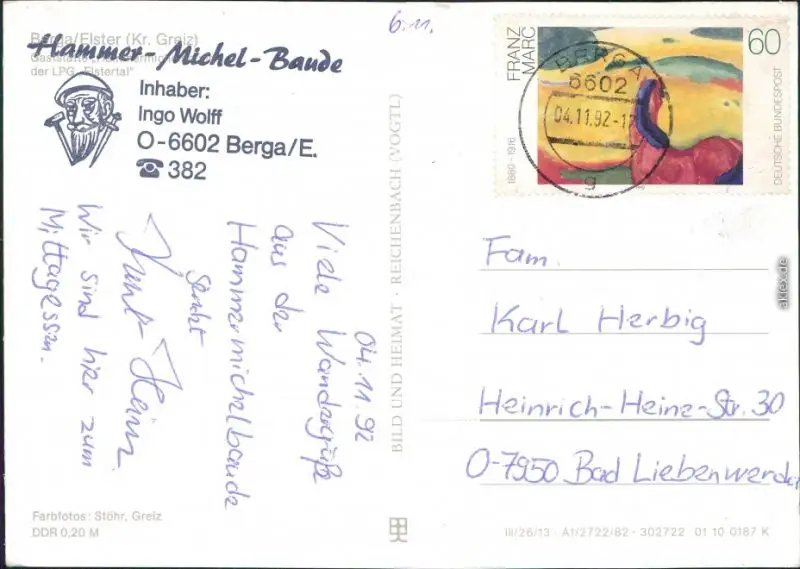 Berga/Elster (Kr. Greiz)
der LPG "Elstertal"
Hammer-Michel-Baude
Inhaber:
Ingo Wolff
O-6602 Berga/E.
☎ 382
6.11.
04.11.92
Viele Wandergrüße
aus der
Hammermichelbaude
sendet
Wir sind hier zum
Mittagessen.
Farbfotos: Stöhr, Greiz
DDR 0,20 M
BILD UND HEIMAT · REICHENBACH (VOGTL)
FRANZ
MARC
1880-1916
60
DEUTSCHE BUNDESPOST
BERGA
6602
04.11.92-17
g
Fam.
Karl Herbig
Heinrich-Heine-Str. 30
O-7950 Bad Liebenwerda
III/26/13 · A1/2722/82 · 302722 01 10 0187 K
akpool.de